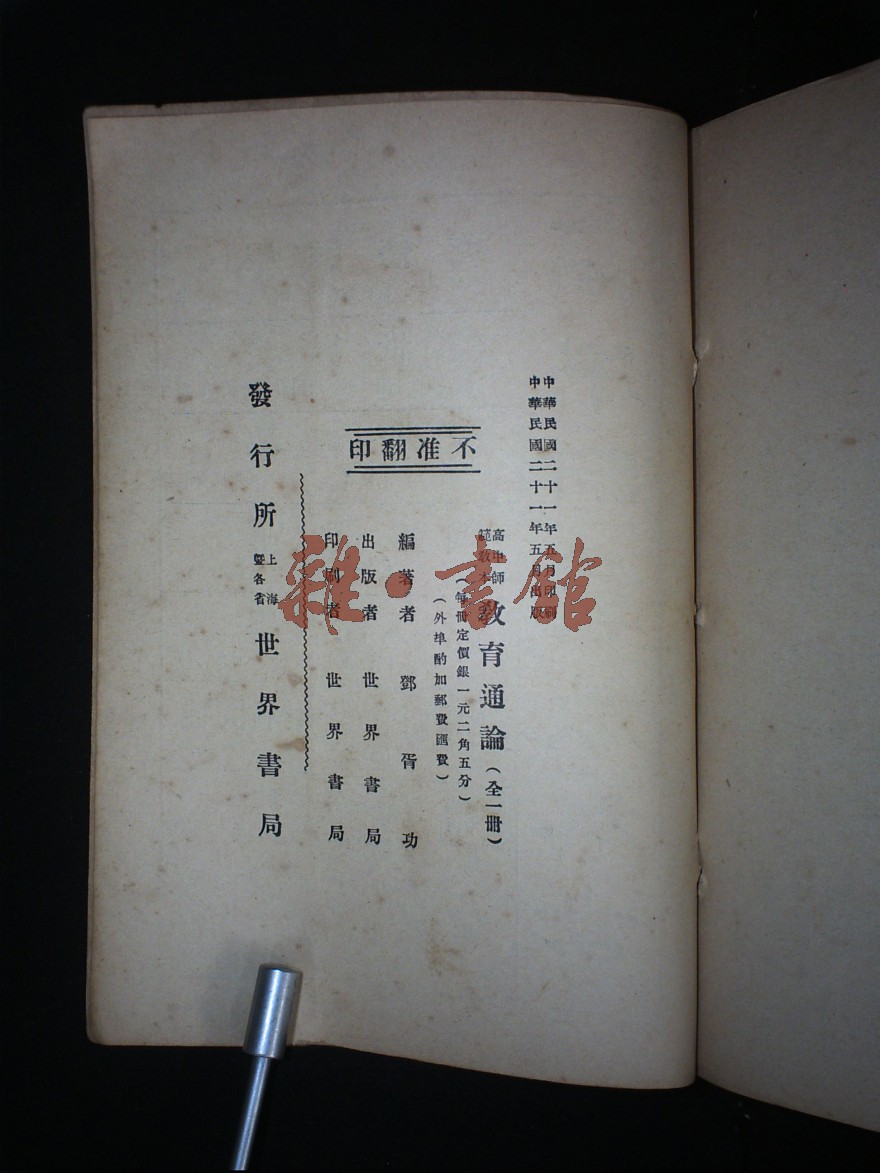 中華民國二十一年五月印刷
中華民國二十一年五月出版
高中師範教本 教育通論（全一冊）
（每冊定價銀一元二角五分）
（外埠酌加郵費匯費）
不准翻印
編著者 鄧胥功
出版者 世界書局
印刷者 世界書局
發行所 上海暨各省 世界書局
雜·書館